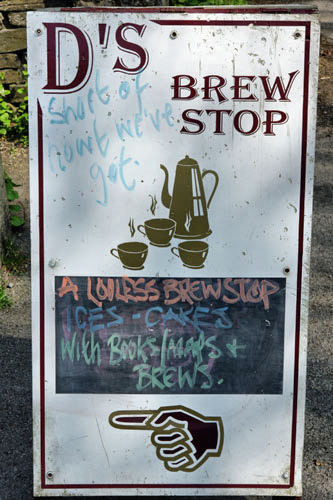 D'S
BREW
STOP
Short of
nowt we've
got.
A LOOLESS BREWSTOP
ICES - CAKES
With BOOKS/MAPS +
BREWS.